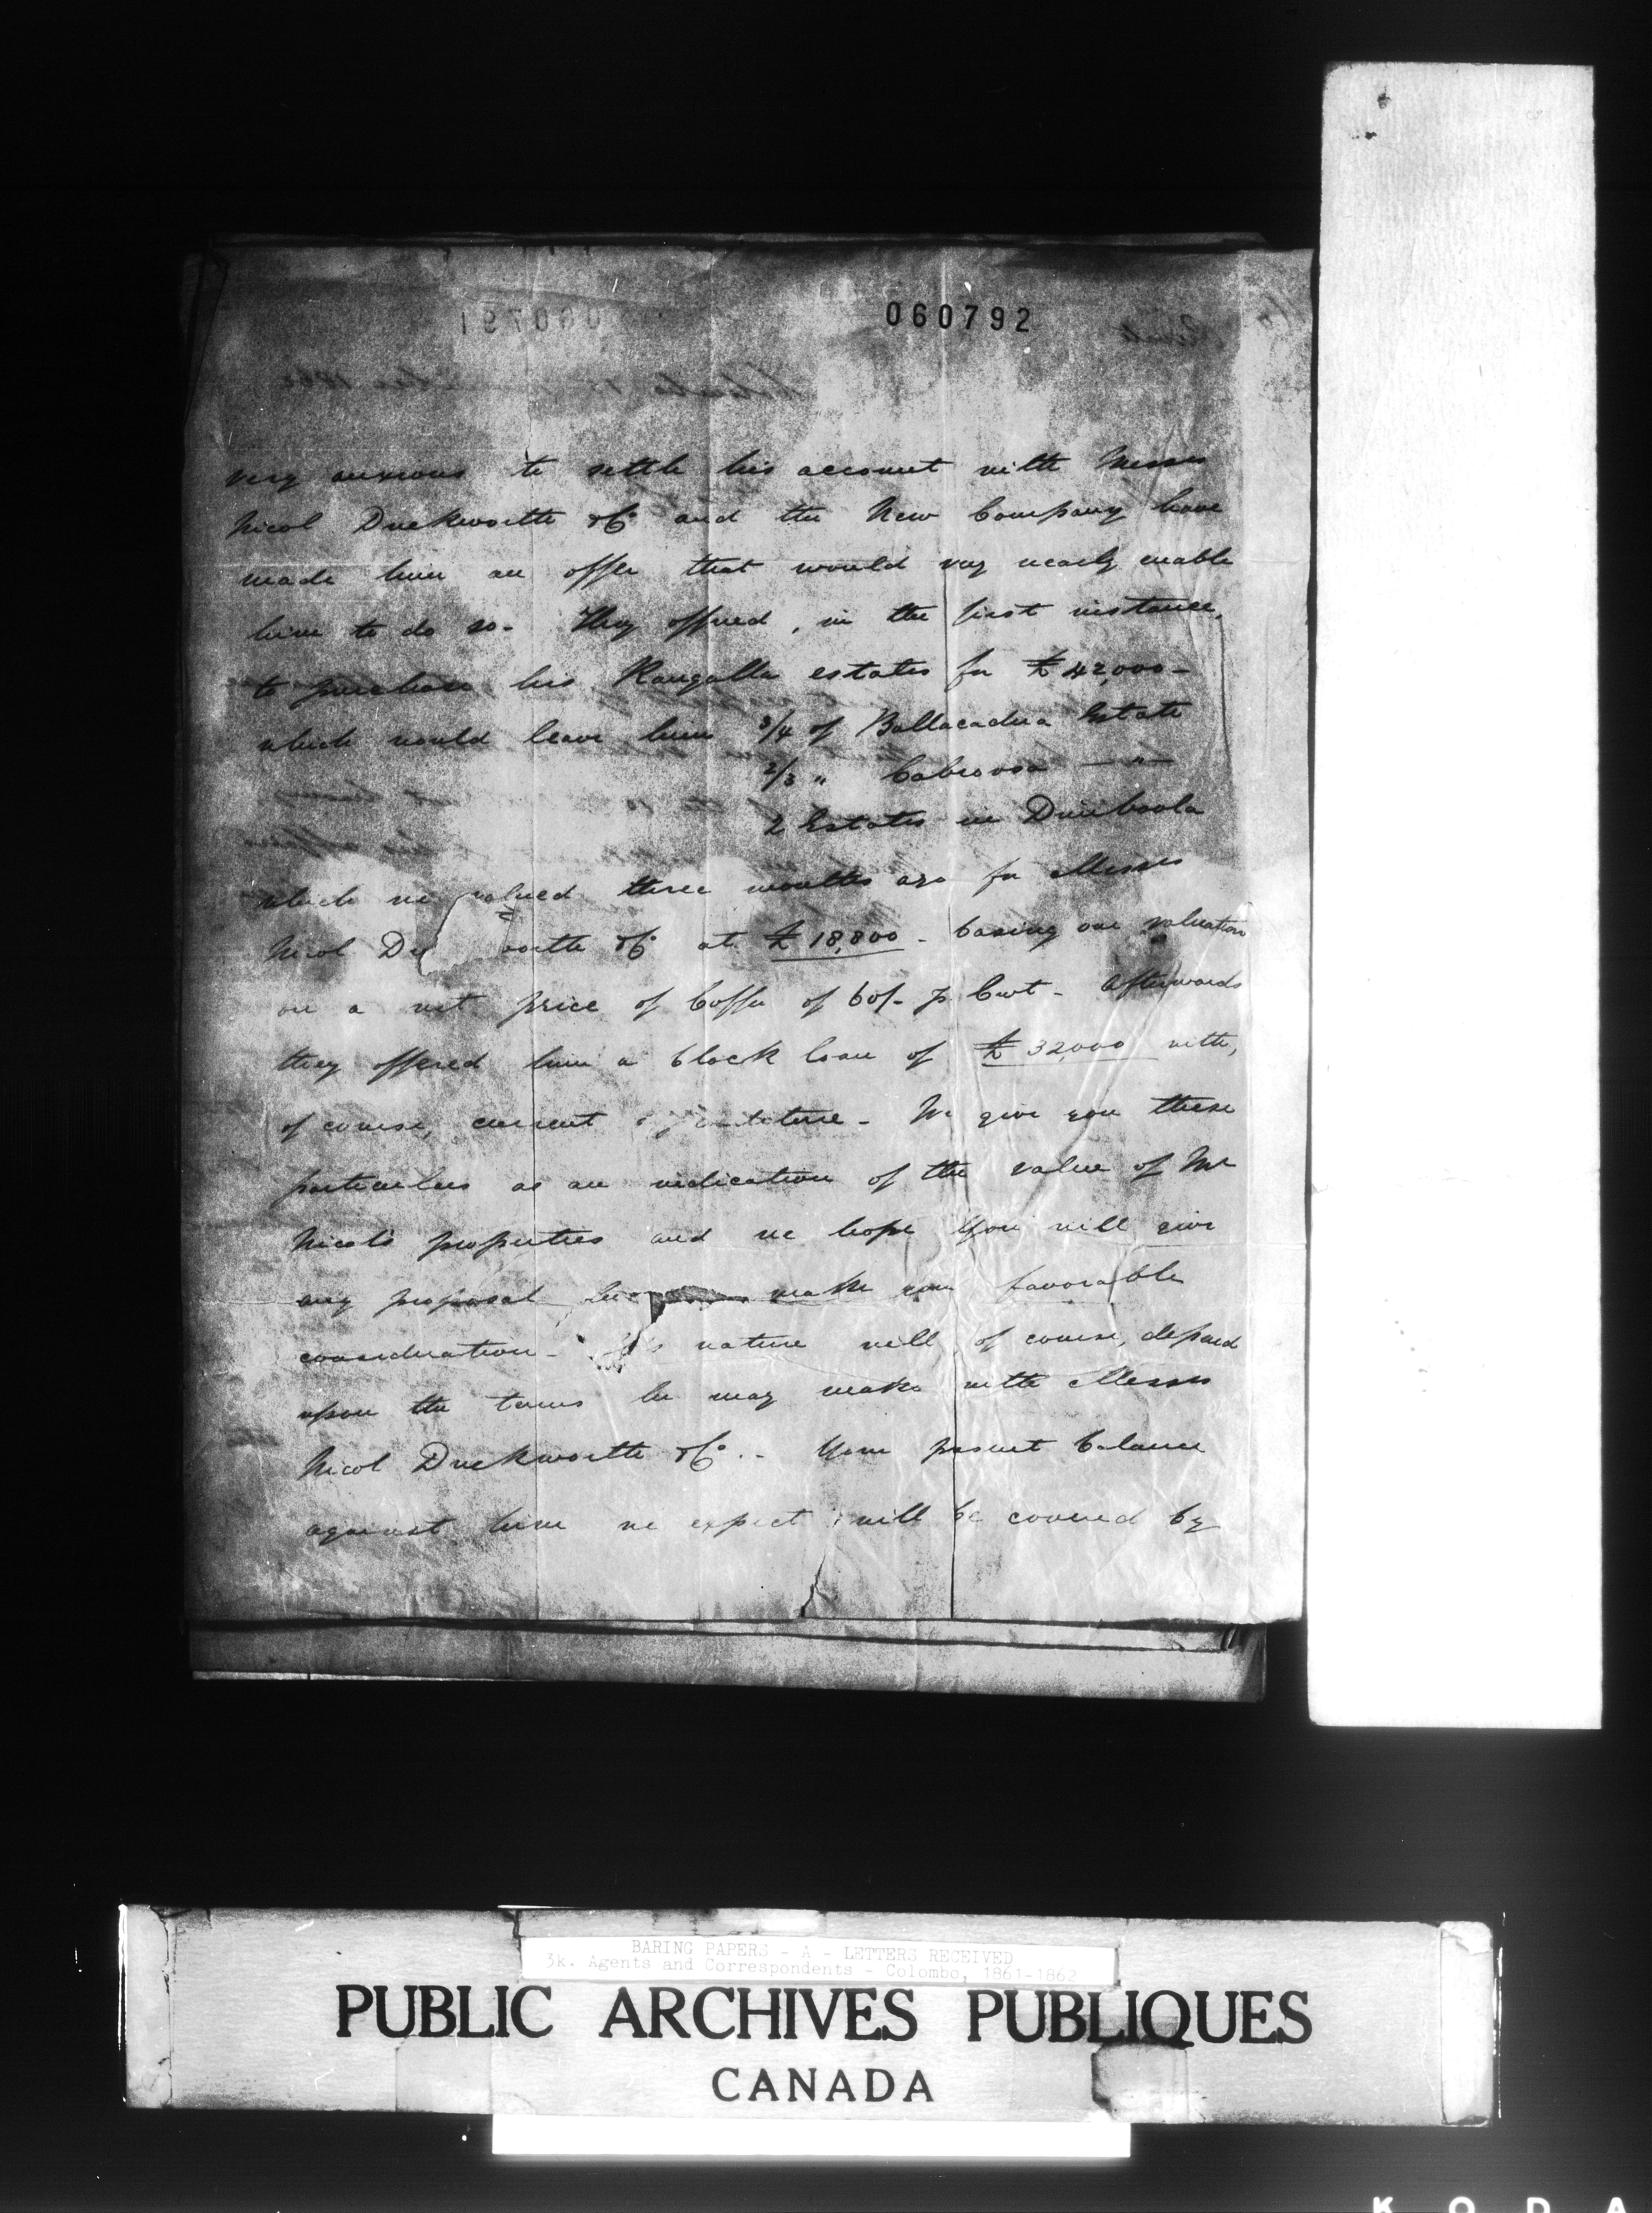 060792
very anxious to settle his account with Messrs
Nicol Duckworth & Co and the New Company have
made him an offer that would very nearly enable
him to do so - They offered, in the first instance,
to purchase his Rangalla estates for £42,000 -
which would leave him 3/4 of Ballacadua Estate
2/3 " Cabroosa — " —
2 Estates in Dimboola
which we valued three months ago for Messrs
Nicol Du worth & Co at £18,800 - basing our valuation
on a net price of Coffee of 60/- p Cwt - Afterwards
they offered him a block loan of £32,000 with,
of course, current - We give you these
particulars as an indication of the value of Mr
Nicol's properties and we hope you will give
any proposal he make your favorable
consideration - Its nature will, of course, depend
upon the terms he may make with Messrs
Nicol Duckworth & Co. - Your present balance
against him we expect will be covered by
BARING PAPERS - A - LETTERS RECEIVED
3k. Agents and Correspondents - Colombo, 1861-1862
PUBLIC ARCHIVES PUBLIQUES
CANADA
K O D A